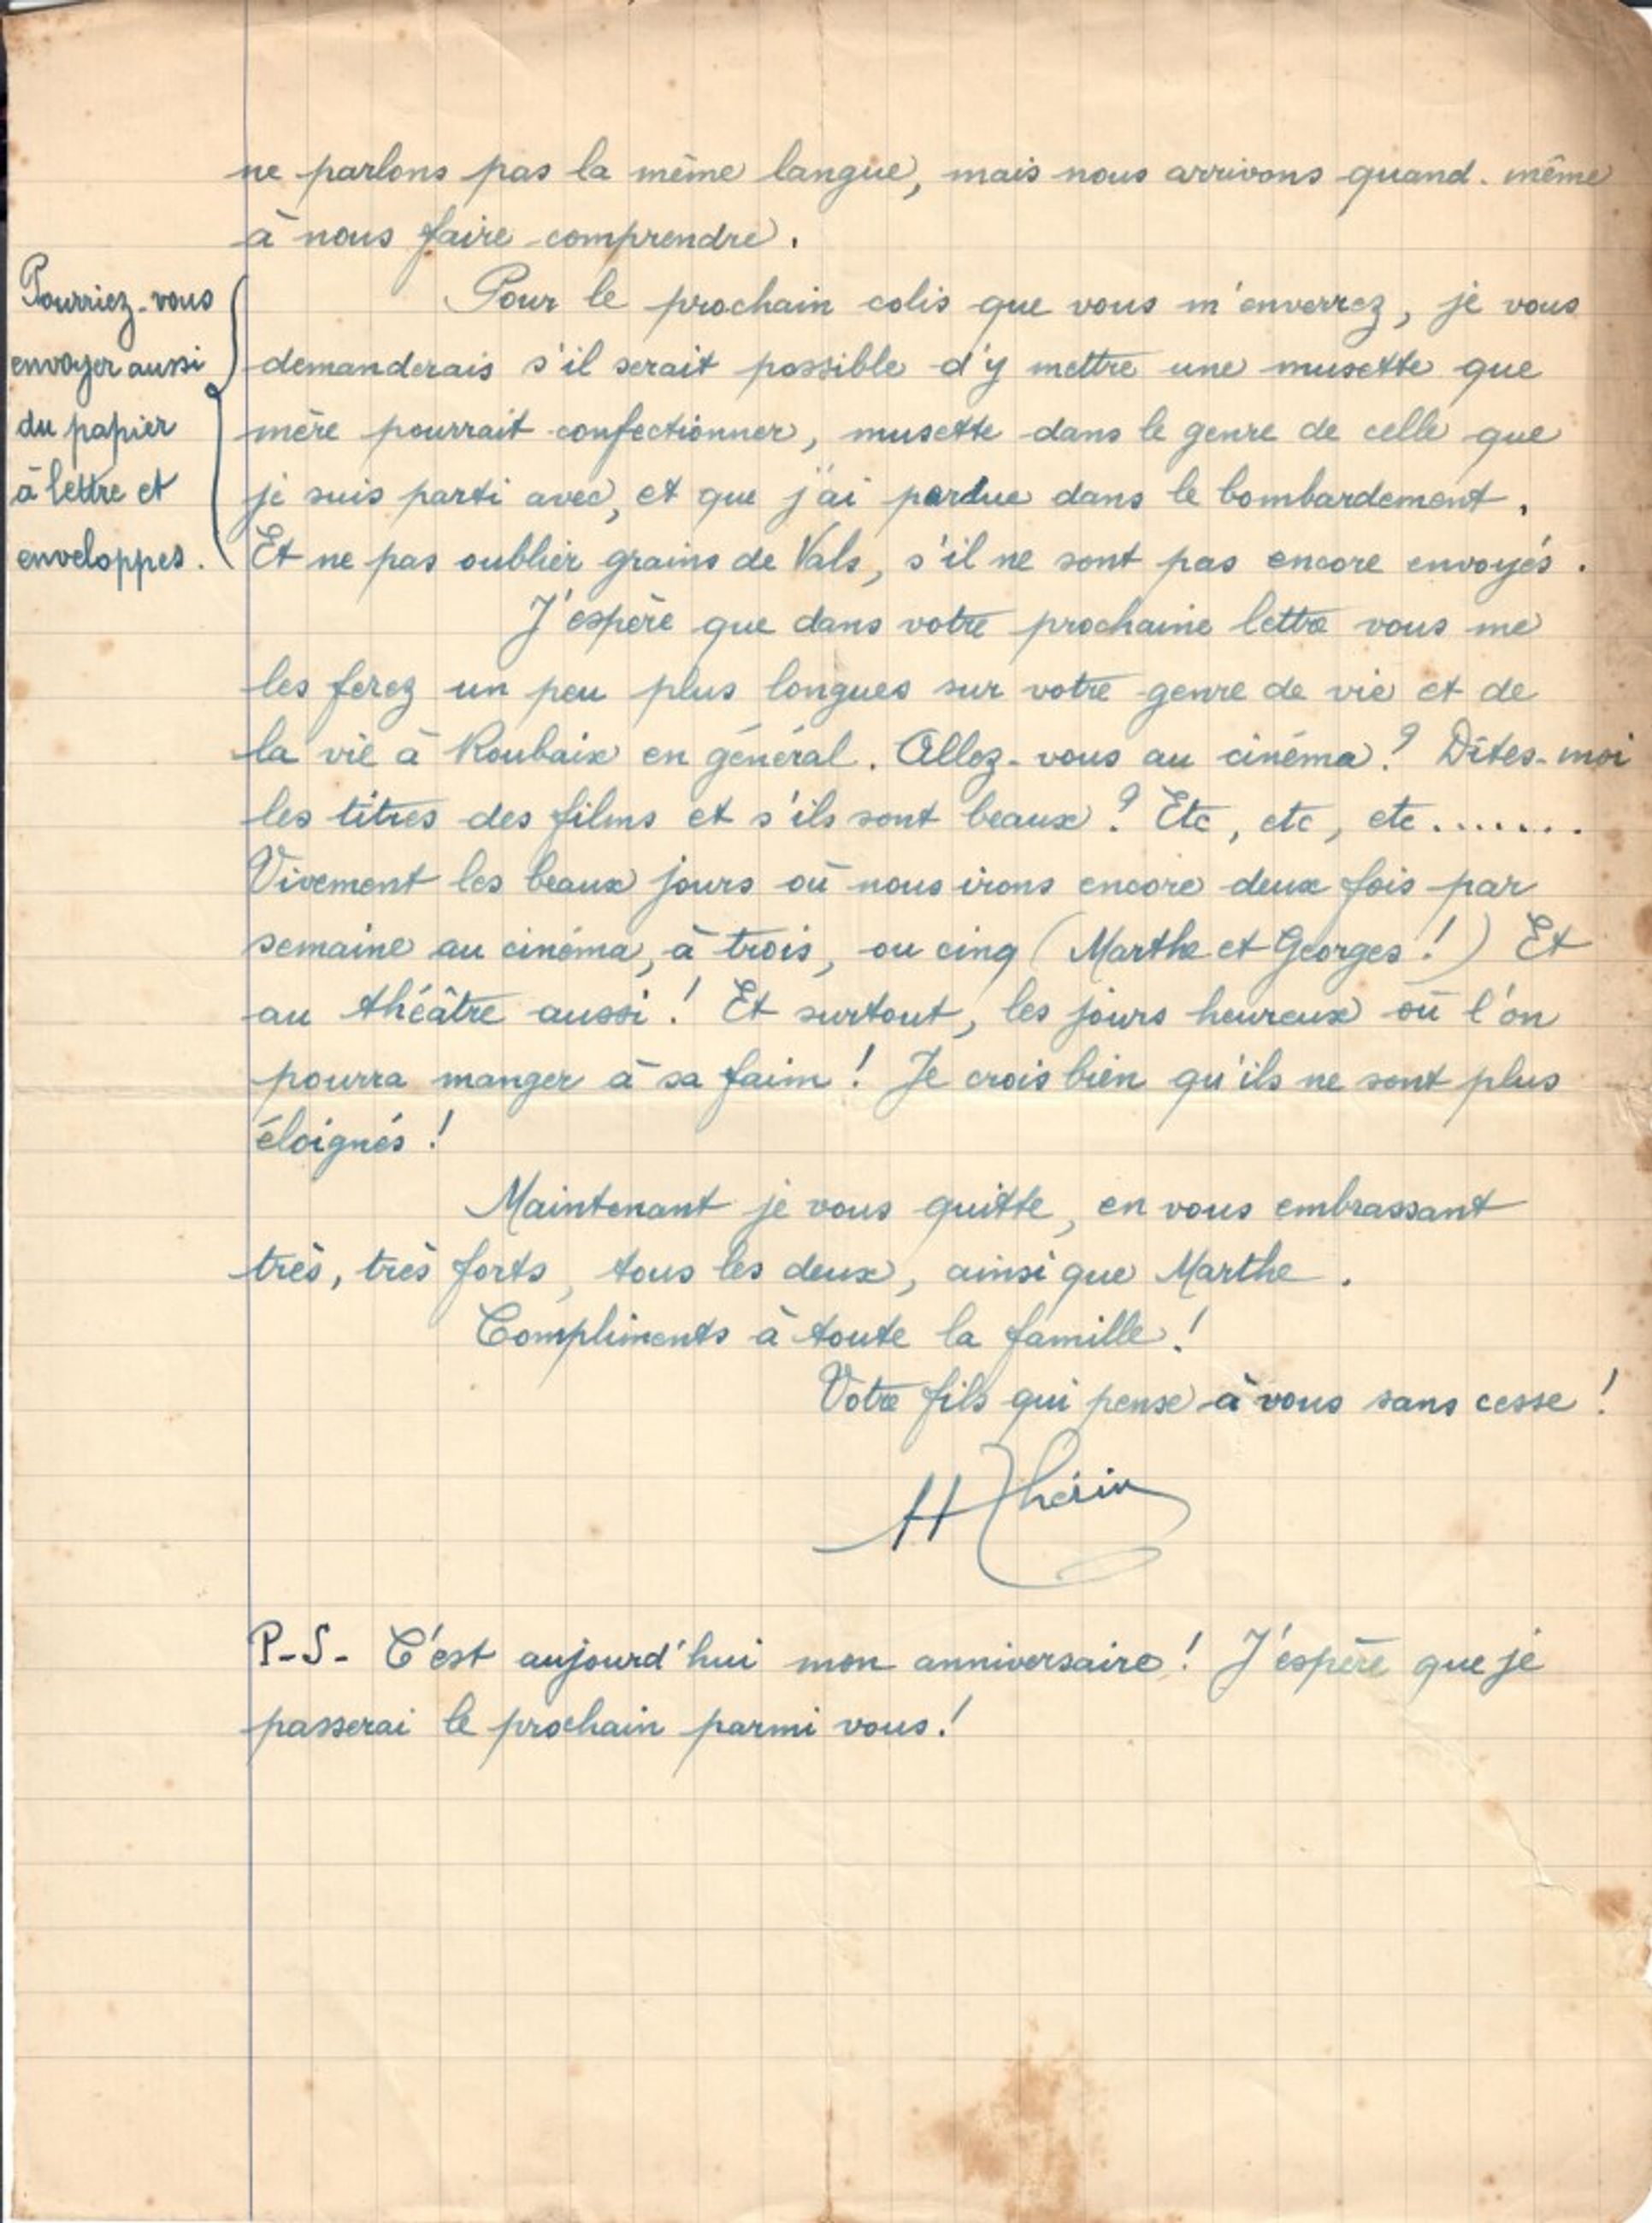 ne parlons pas la même langue, mais nous arrivons quand-même
à nous faire comprendre.
Pourriez-vous
envoyer aussi
du papier
à lettre et
enveloppes.
Pour le prochain colis que vous m'enverrez, je vous
demanderais s'il serait possible d'y mettre une musette que
mère pourrait confectionner, musette dans le genre de celle que
je suis parti avec, et que j'ai perdue dans le bombardement.
Et ne pas oublier grains de Vals, s'il ne sont pas encore envoyés.
J'espère que dans votre prochaine lettre vous me
les ferez un peu plus longues sur votre genre de vie et de
la vie à Roubaix en général. Allez-vous au cinéma? Dîtes-moi
les titres des films et s'ils sont beaux? Etc, etc, etc.......
Vivement les beaux jours où nous irons encore deux fois par
semaine au cinéma, à trois, ou cinq (Marthe et Georges!) Et
au théâtre aussi! Et surtout, les jours heureux où l'on
pourra manger à sa faim! Je crois bien qu'ils ne sont plus
éloignés!
Maintenant je vous quitte, en vous embrassant
très, très forts, tous les deux, ainsi que Marthe.
Compliments à toute la famille!
Votre fils qui pense à vous sans cesse!
H Thérin
P-S- C'est aujourd'hui mon anniversaire! J'espère que je
passerai le prochain parmi vous!